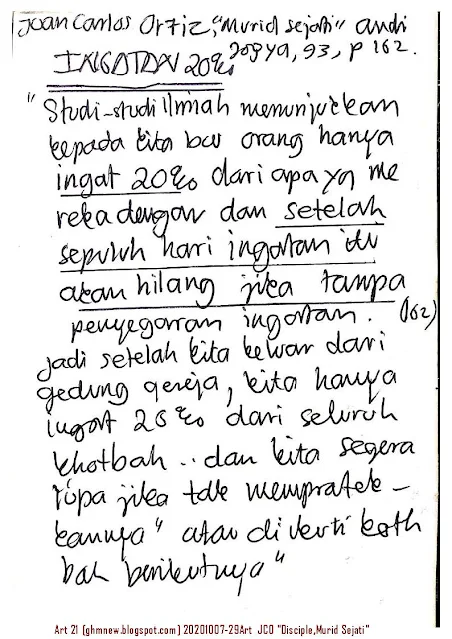 Joan Carlos Ortiz, "Murid sejati" andi
Jogya, 93, p 162.
INGATAN 20%
"Studi-studi Ilmiah menunjukkan
kepada kita bw orang hanya
ingat 20% dari apa yg me
reka dengar dan setelah
sepuluh hari ingatan itu
akan hilang jika tanpa
penyegaran ingatan. (162)
jadi setelah kita keluar dari
gedung gereja, kita hanya
ingat 20% dari seluruh
khotbah .. dan kita segera
rupa jika tdk mempratek-
kannya" atau di ikuti koth
bah berikutnya"
Art 21 (ghmnew.blogspot.com) 20201007-29Art JCO "Disciple,Murid Sejati"